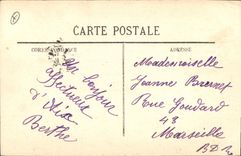 CARTE POSTALE
CORRESPONDANCE
ADRESSE
un bonjour
affectueux
d'Aix
Berthe
Mademoiselle
Jeanne
Rue Goudard
43
Marseille
B D R